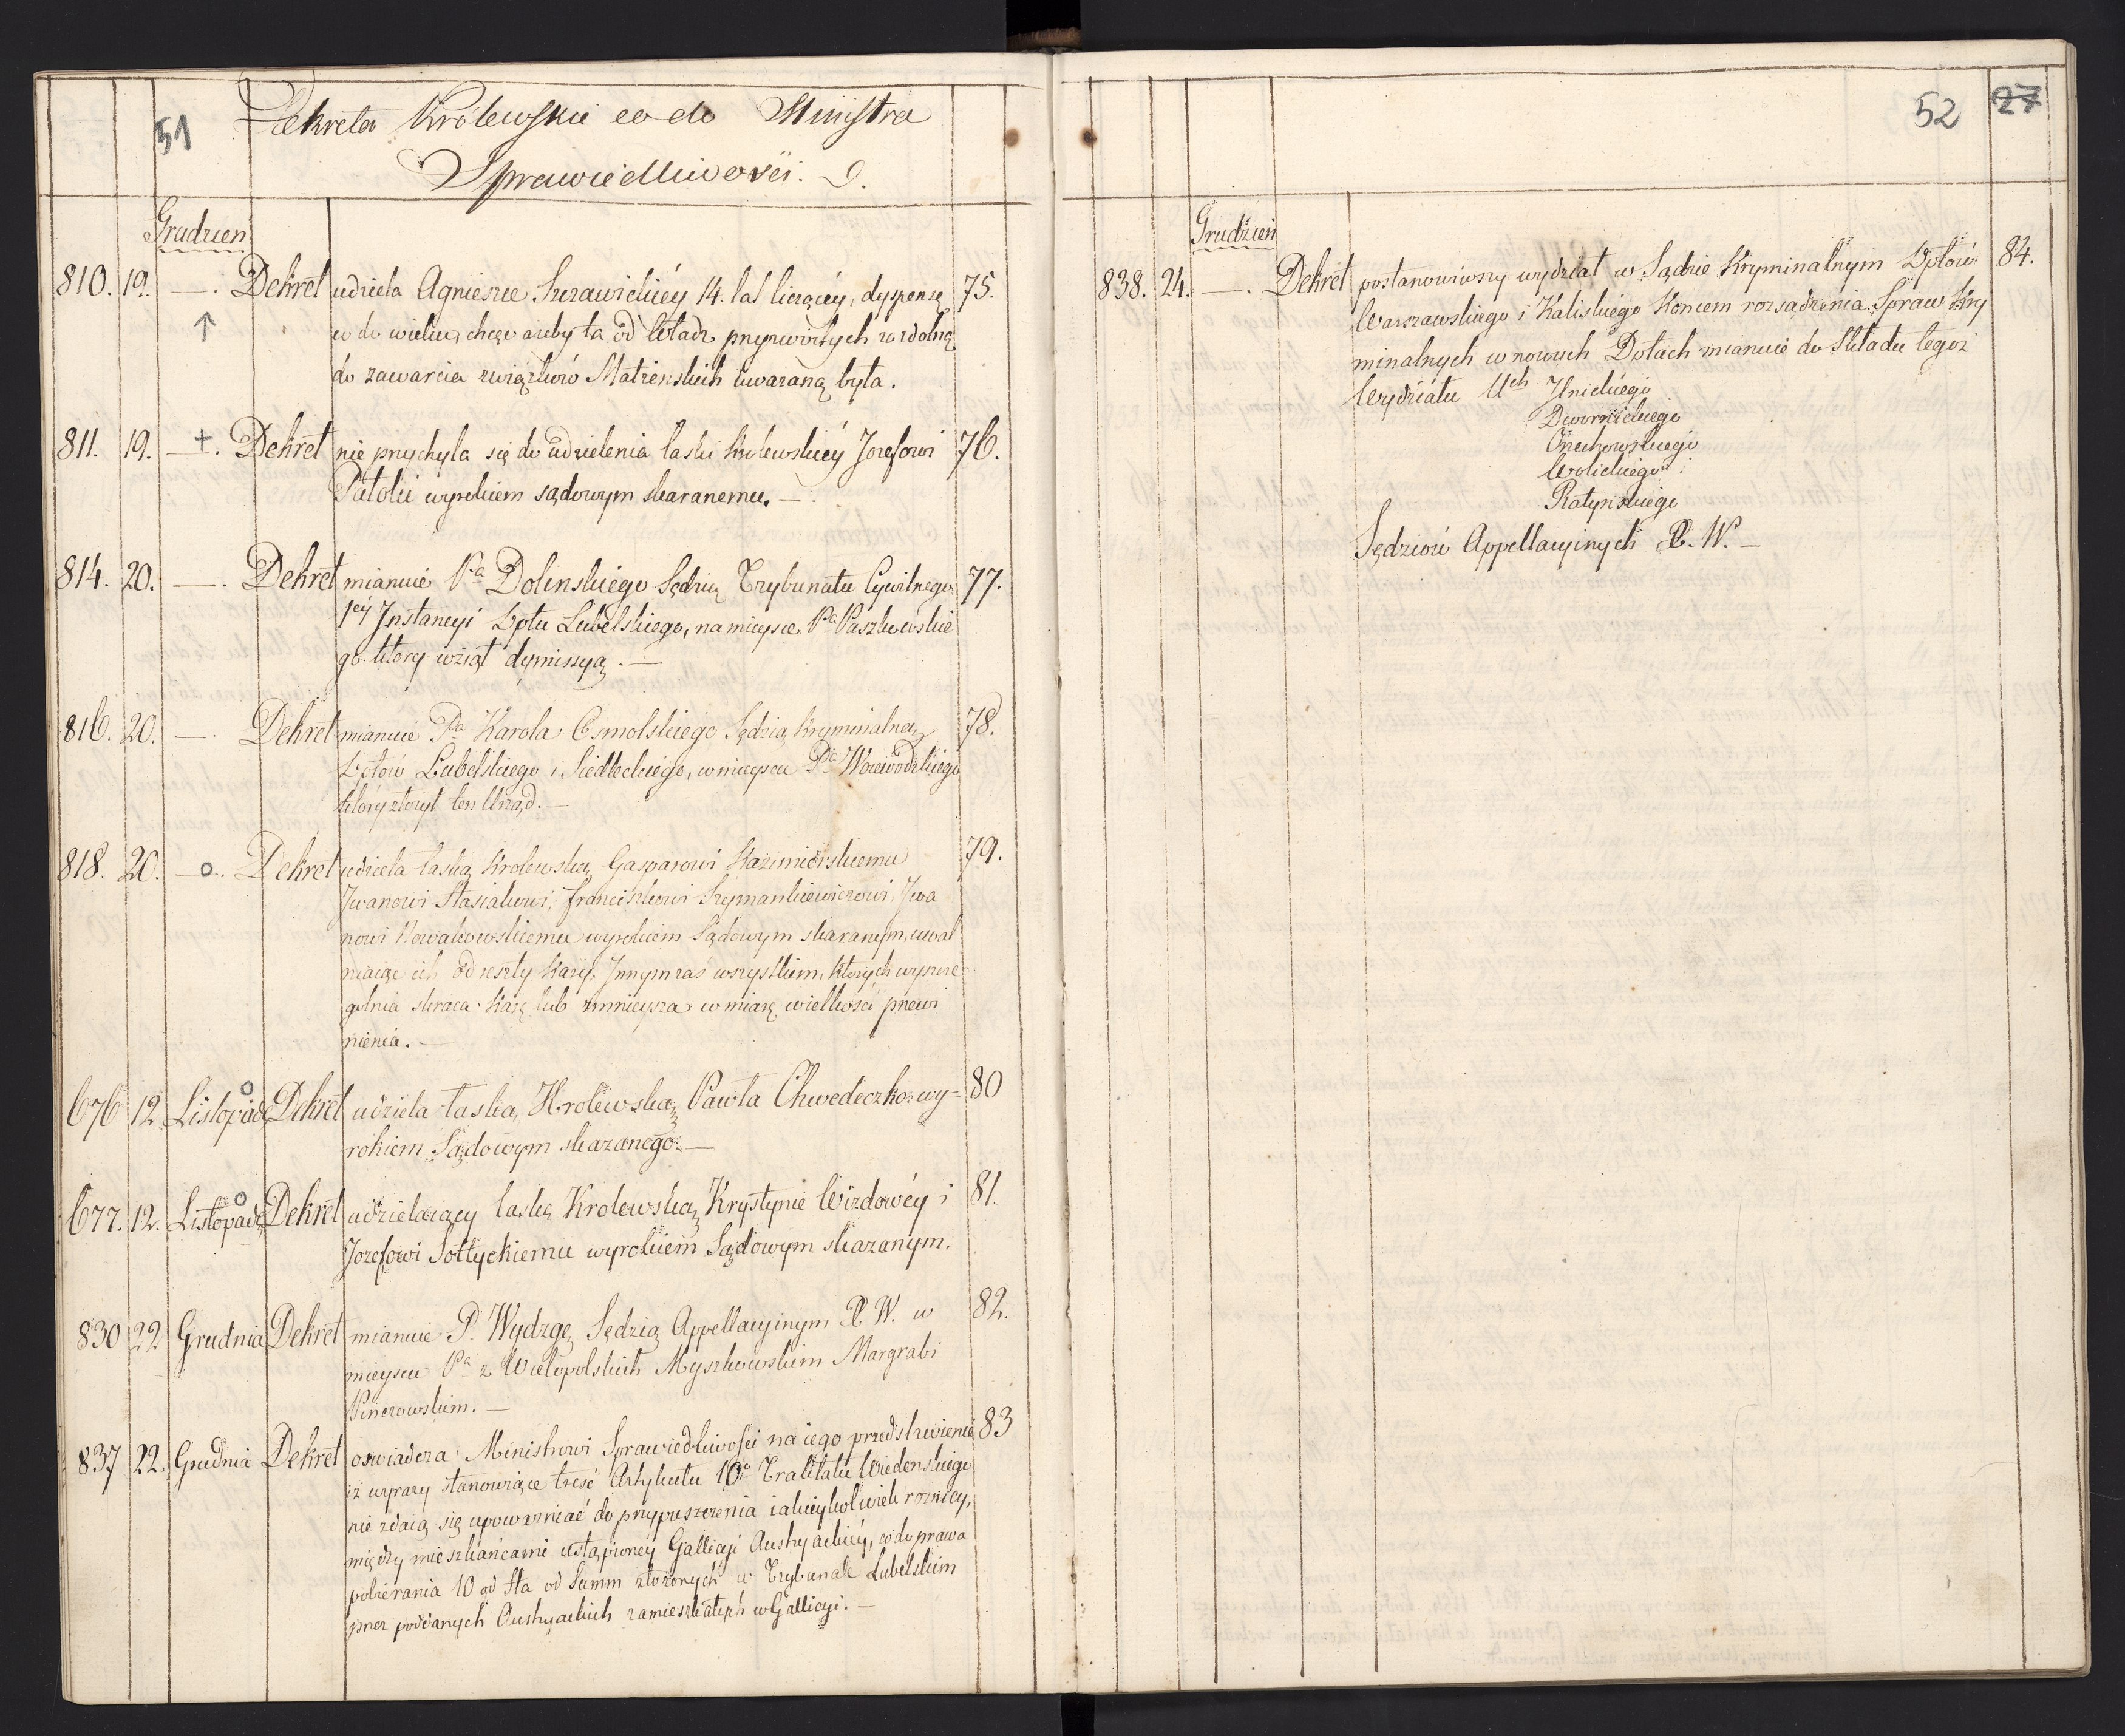 51
Dekreta Królewskie co do Ministra
Sprawiedliwości.
Grudzień
810. 19. —. Dekret udziela Agniesze Szczawickiéy 14. lat liczącéy, dyspensę 75.
co do wieku, chcąc ażeby ta od Władz przyzwoitych za wolną
do zawarcia związków Małżenskich uważaną była.
811. 19. +. Dekret nie przychyla się do udzielenia łaski Krolewskiéy Jozefowi 76.
Patoki wyrokiem sądowym skaranemu. —
814. 20. —. Dekret mianuie Pa Dolinskiego Sędzią Trybunału Cywilnego 77.
1éy Jnstancyi Dptu Lubelskiego, na mieysce Pa Paszkowskie
go który wziął dymissyą. —
816. 20. —. Dekret mianuie Pa Karola Osmolskiego Sędzią Kryminalną 78.
Dptow Lubelskiego i Siedleckiego, w mieyscu Pa Woiewodzkiego
który złożył ten Urząd. —
818. 20. —o. Dekret udziela łaskę Krolewską Gasparowi Kazimierskiemu 79.
Jwanowi Stasiakowi, Franciszkowi Szymankiewiczowi, Jwa
nowi Kowalewskiemu wyrokiem Sądowym skaranym, uwal
niaiąc ich od reszty Kary. Jnnym zaś wszystkim, których wyszcze
gulnia skraca Karę lub zmnieysza w miarę wielkości przewi
nienia. —
676 12. Listopada o Dekret udziela łaską Krolewską Pawła Chwedeczko wy= 80
rokiem Sądowym skazanego. —
677. 12. Listopada o Dekret udzielaiący łaskę Krolewską Krystynie Wizdowéy i 81.
Jozefowi Sołtyckiemu wyrokiem Sądowym skazanym.
830 22 Grudnia Dekret mianuie P. Wydzgę Sędzią Appellacyinym X. W. w 82.
mieyscu Pa z Wielopolskich Myszkowskim Margrabi
Pinczowskim. —
837 22. Grudnia Dekret oswiadcza Ministrowi Sprawiedliwości na iego przedstawienie 83
iż wyrazy stanowiące treść Artykułu 10o Traktatu Wiedenskiego
nie zdaią się upoważniać do przypuszczenia iakieykolwiek rożnicy,
między mieszkańcami ustąpioney Gallicyi Austryackiéy, co do prawa
pobierania 10 od Sta od Summ złożonych w Trybunale Lubelskim
przez poddanych Austryackich zamieszkałych w Gallicyi. —
52 27
Grudzień
838. 24. —. Dekret postanowiwszy wydział w Sądzie Kryminalnym Dptów 84.
Warszawskiego i Kaliskiego Koncem rozsądzenia Spraw Kry
minalnych w nowych Dptach mianuie do Składu tegoż
Wydziału Uch Ilnickiego
Dwornickiego
Orzechowskiego
Wolickiego i
Ratynskiego
Sędziow Appellacyinych X. W. —